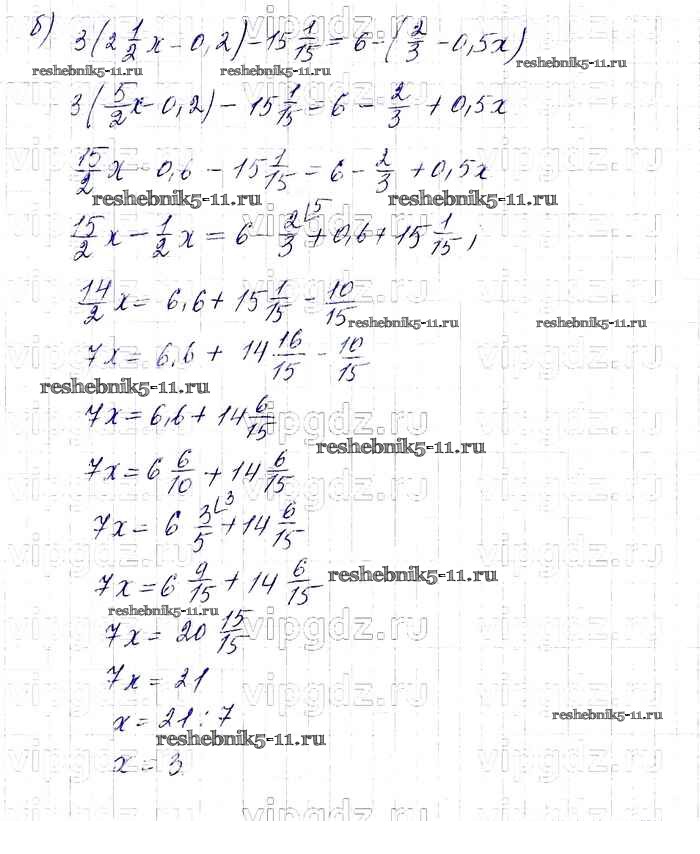 б) 3(2 1/2 x - 0,2) - 15 1/15 = 6 - (2/3 - 0,5x)
reshebnik5-11.ru reshebnik5-11.ru reshebnik5-11.ru
3(5/2 x - 0,2) - 15 1/15 = 6 - 2/3 + 0,5x
vipgdz.ru vipgdz.ru
15/2 x - 0,6 - 15 1/15 = 6 - 2/3 + 0,5x
reshebnik5-11.ru reshebnik5-11.ru
15/2 x - 1/2 x = 6 - 2/3 ⌊5 + 0,6 + 15 1/15;
vipgdz.ru vipgdz.ru
14/2 x = 6,6 + 15 1/15 - 10/15
reshebnik5-11.ru reshebnik5-11.ru
7x = 6,6 + 14 16/15 - 10/15
vipgdz.ru vipgdz.ru
reshebnik5-11.ru
7x = 6,6 + 14 6/15
vipgdz.ru
reshebnik5-11.ru
7x = 6 6/10 + 14 6/15
vipgdz.ru
7x = 6 3/5 ⌊3 + 14 6/15
vipgdz.ru
7x = 6 9/15 + 14 6/15
reshebnik5-11.ru
reshebnik5-11.ru
7x = 20 15/15
vipgdz.ru
7x = 21
vipgdz.ru
x = 21 : 7
reshebnik5-11.ru
reshebnik5-11.ru
x = 3
vipgdz.ru